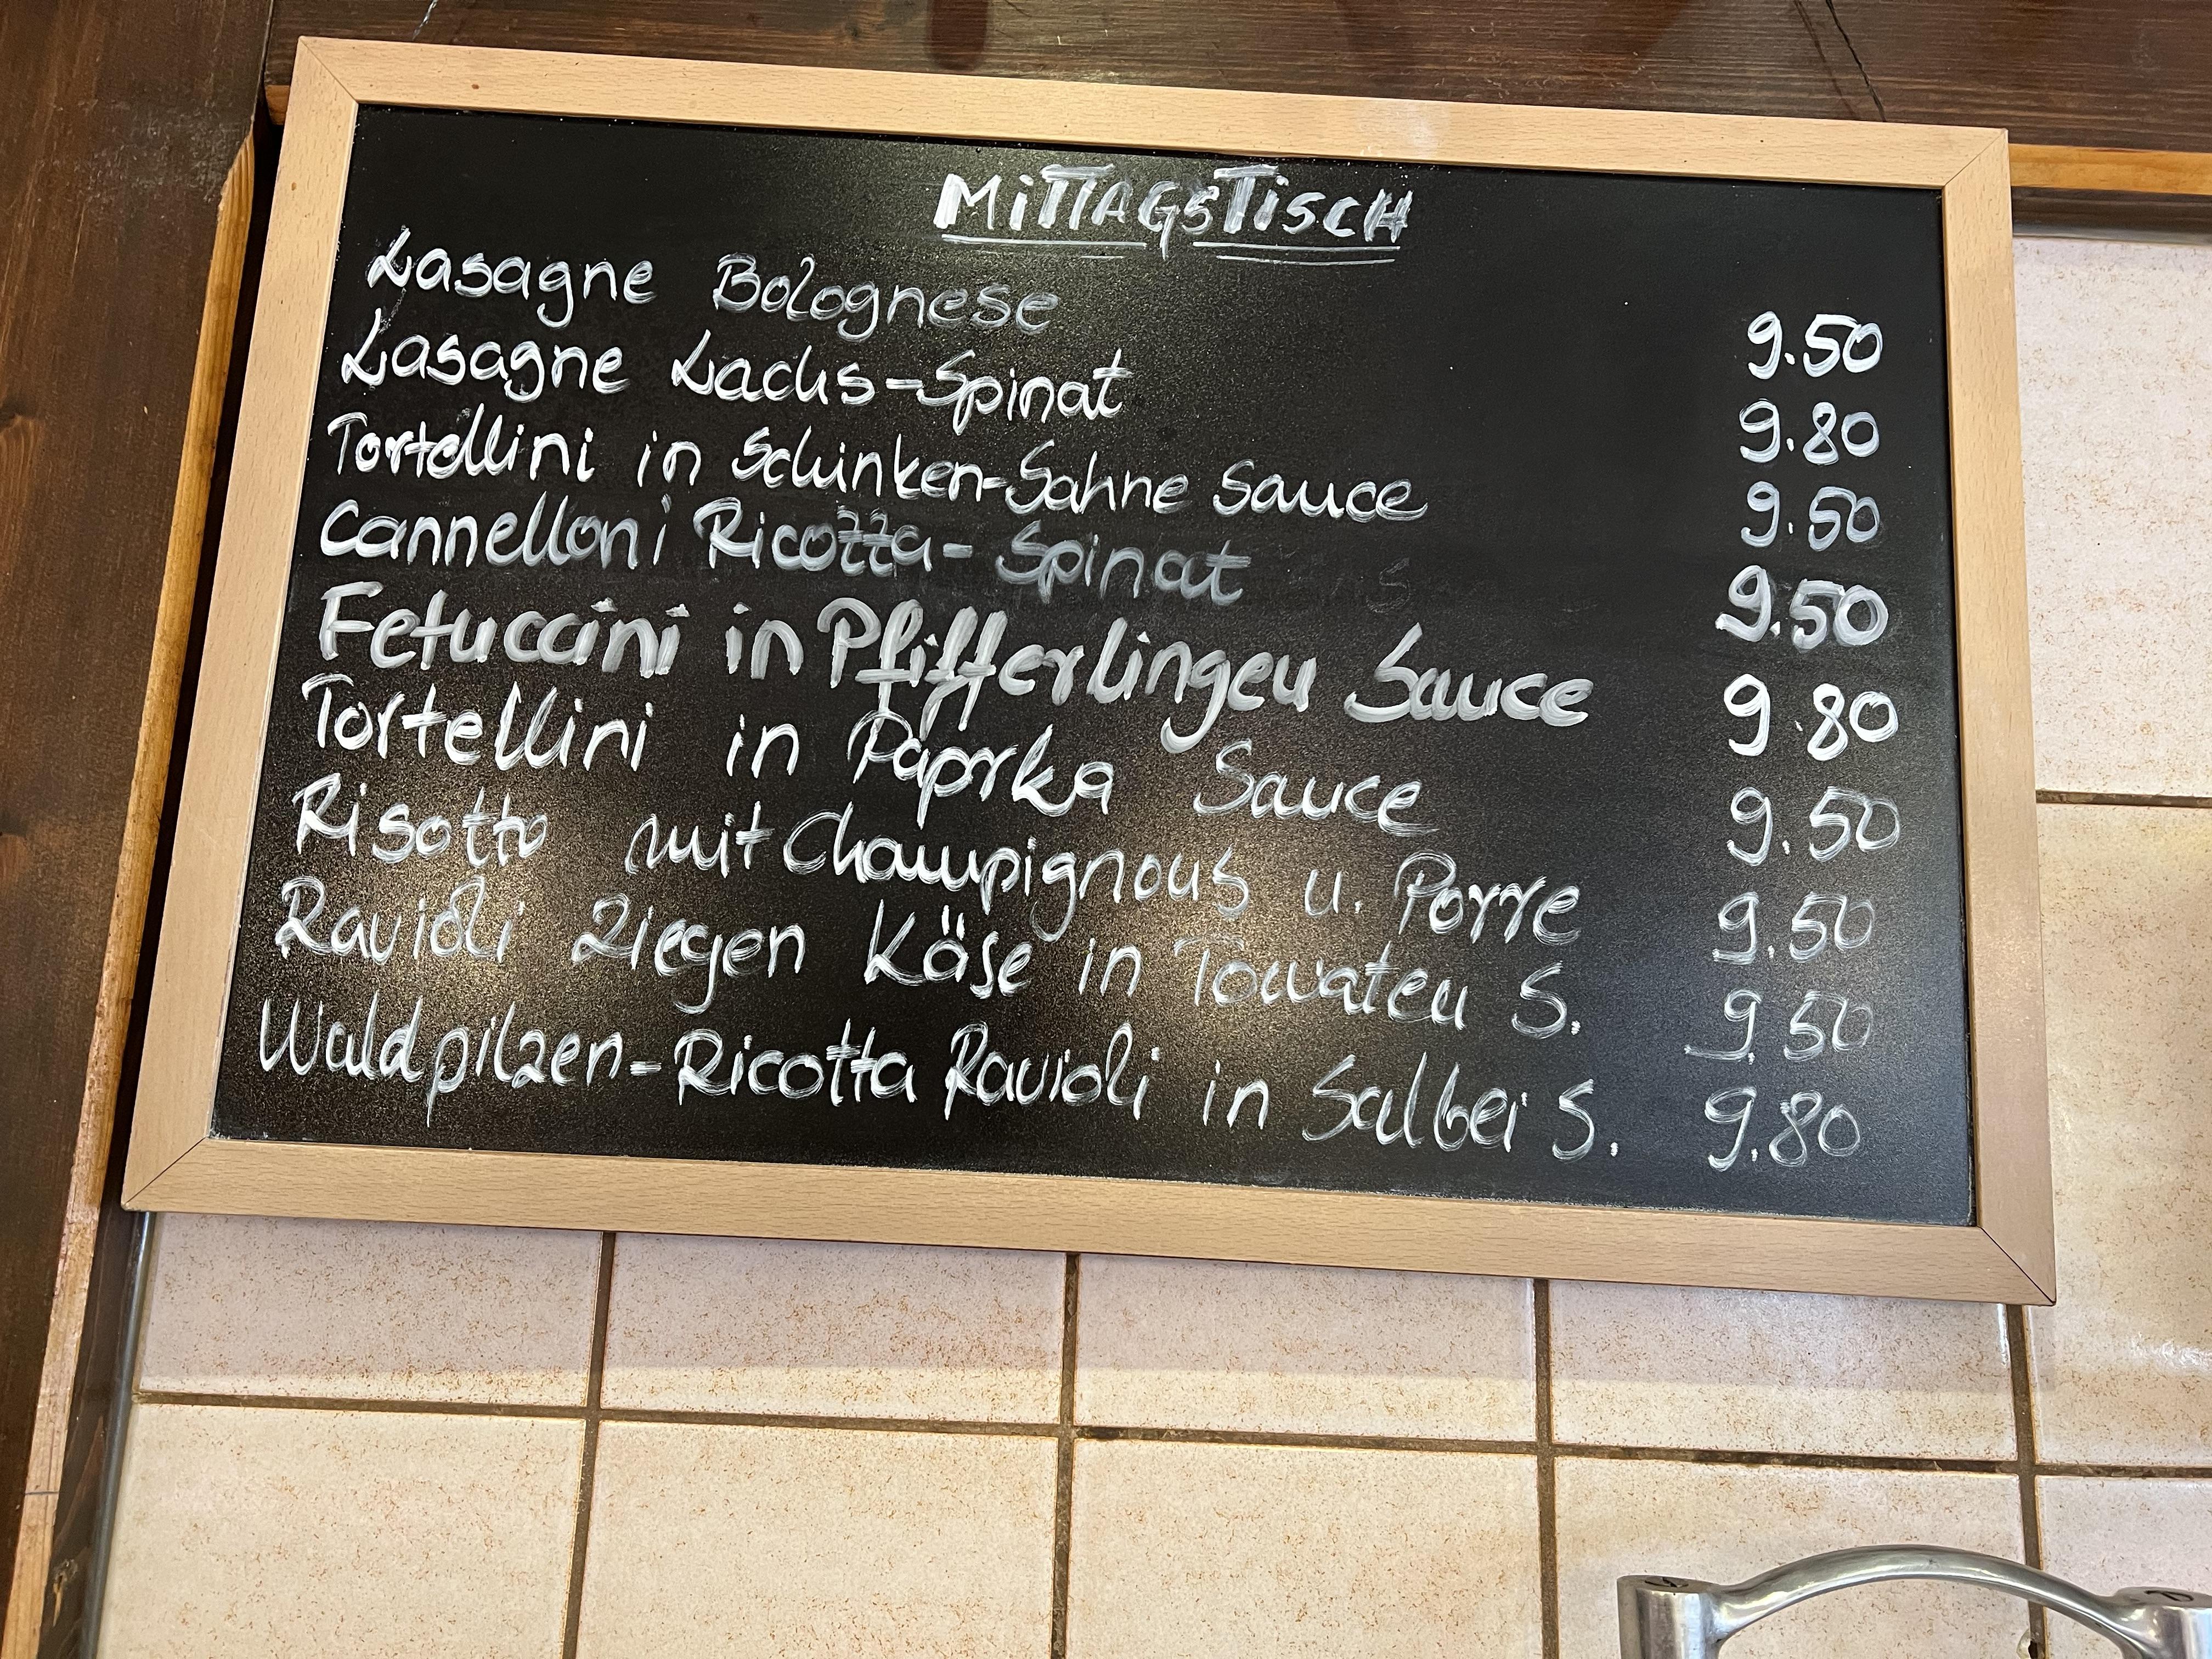 MITTAGSTISCH
Lasagne Bolognese 9.50
Lasagne Lachs-Spinat 9.80
Tortellini in Schinken-Sahne Sauce 9.50
Cannelloni Ricotta-Spinat 9.50
Fetuccini in Pfifferlingen Sauce 9.80
Tortellini in Paprka Sauce 9.50
Risotto mit Champignons u. Porre 9.50
Ravioli Ziegen Käse in Tomaten S. 9.50
Waldpilzen-Ricotta Ravioli in Salbei S. 9.80